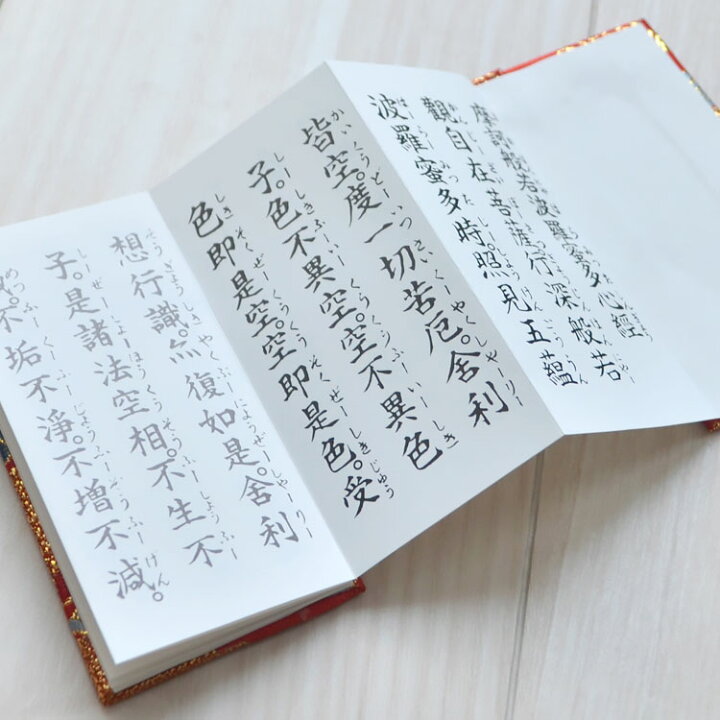 摩訶般若波羅蜜多心經
觀自在菩薩行深般若
波羅蜜多時。照見五蘊
皆空。度一切苦厄。舍利
子。色不異空。空不異色
色即是空。空即是色。受
想行識。亦復如是。舍利
子。是諸法空相。不生不
不垢不淨。不增不減。